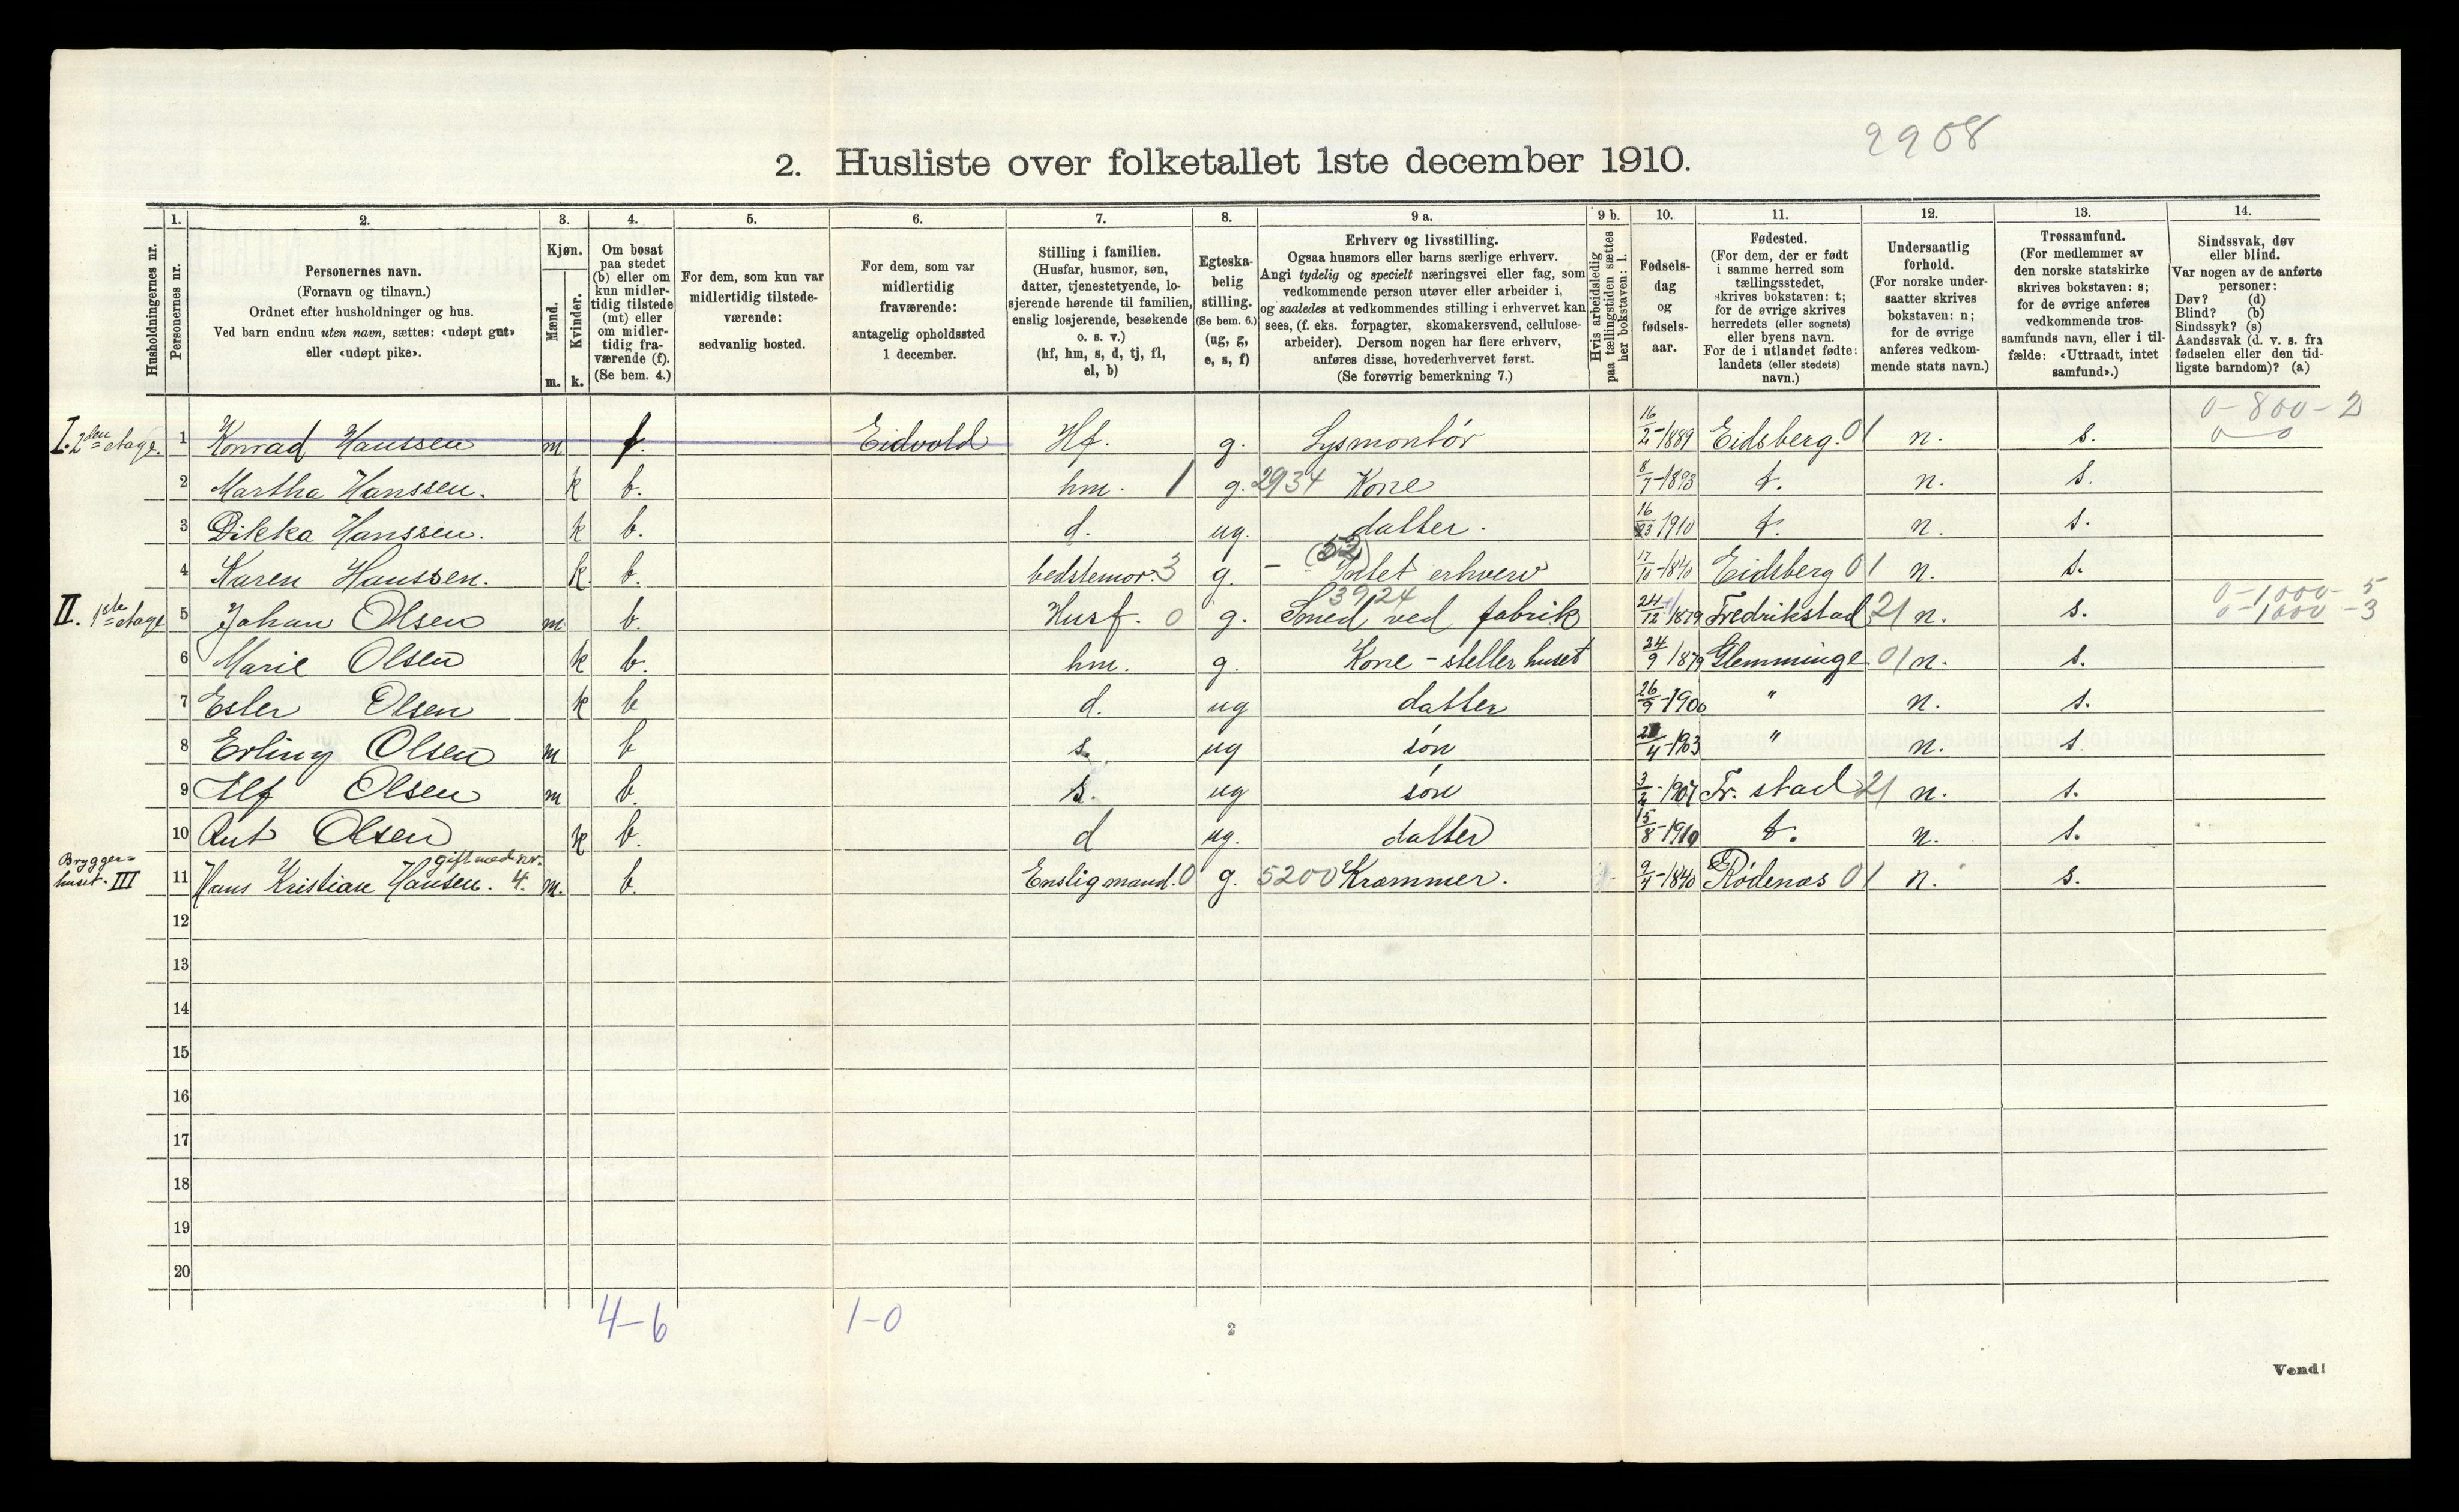 2908
2. Husliste over folketallet 1ste december 1910.
1. 2. 3. 4. 5. 6. 7. 8. 9 a. 9 b. 10. 11. 12. 13. 14.
Husholdningernes nr.
Personernes nr.
Personernes navn.
(Fornavn og tilnavn.)
Ordnet efter husholdninger og hus.
Ved barn endnu uten navn, sættes: «udøpt gut»
eller «udøpt pike».
Kjøn.
Mænd.
Kvinder.
m. k.
Om bosat
paa stedet
(b) eller om
kun midler-
tidig tilstede
(mt) eller
om midler-
tidig fra-
værende (f).
(Se bem. 4.)
For dem, som kun var
midlertidig tilstede-
værende:
sedvanlig bosted.
For dem, som var
midlertidig
fraværende:
antagelig opholdssted
1 december.
Stilling i familien.
(Husfar, husmor, søn,
datter, tjenestetyende, lo-
sjerende hørende til familien,
enslig losjerende, besøkende
o. s. v.)
(hf, hm, s, d, tj, fl,
el, b)
Egteska-
belig
stilling.
(Se bem. 6.)
(ug, g,
e, s, f)
Erhverv og livsstilling.
Ogsaa husmors eller barns særlige erhverv.
Angi tydelig og specielt næringsvei eller fag, som
vedkommende person utøver eller arbeider i,
og saaledes at vedkommendes stilling i erhvervet kan
sees, (f. eks. forpagter, skomakersvend, cellulose-
arbeider). Dersom nogen har flere erhverv,
anføres disse, hovederhvervet først.
(Se forøvrig bemerkning 7.)
Hvis arbeidsledig
paa tællingstiden sættes
her bokstaven: l.
Fødsels-
dag
og
fødsels-
aar.
Fødested.
(For dem, der er født
i samme herred som
tællingsstedet,
skrives bokstaven: t;
for de øvrige skrives
herredets (eller sognets)
eller byens navn.
For de i utlandet fødte:
landets (eller stedets)
navn.)
Undersaatlig
forhold.
(For norske under-
saatter skrives
bokstaven: n;
for de øvrige
anføres vedkom-
mende stats navn.)
Trossamfund.
(For medlemmer av
den norske statskirke
skrives bokstaven: s;
for de øvrige anføres
vedkommende tros-
samfunds navn, eller i til-
fælde: «Uttraadt, intet
samfund».)
Sindssvak, døv
eller blind.
Var nogen av de anførte
personer:
Døv? (d)
Blind? (b)
Sindssyk? (s)
Aandssvak (d. v. s. fra
fødselen eller den tid-
ligste barndom)? (a)
0-800-2
I. 2den etage. 1 Konrad Hanssen m f. Eidvold Hf. g. Lysmontør 16/2-1889 Eidsberg. 01 n. s. 0-0
2 Martha Hanssen. k b. hm. 1 g. 2934 Kone 8/7-1893 t. n. s.
3 Dikka Hanssen. k b. d. ug. datter. 1910 t. n. s.
4 Karen Hanssen. k. b. bedstemor. 3 g. - (52) Intet erhverv 17/10-1840 Eidsberg 01 n. s.
0-1000-5
II. 1ste etage 5 Johan Olsen m b. Husf. 0 g. 3924 Smed ved fabrik 24/12 1879 Fredrikstad 21 n. s. 0-1000-3
6 Marie Olsen k b. hm. g. Kone - steller huset 24/9 1879 Glemminge 01 n. s.
7 Ester Olsen k b d. ug datter 26/9-1900 " n. s.
8 Erling Olsen m b s. ug søn 1903 " n. s.
9 Alf Olsen m b. s. ug søn 3/2-1907 Fr. stad 21 n. s.
10 Rut Olsen k b. d ug. datter 15/8-1910 t. n. s.
Brygger-
huset. III 11 Hans Kristian Hansen. gift med nr. 4. m. b. Enslig mand. 0 g. 5200 Kræmmer. 9/4-1840 Rødenæs 01 n. s.
12
13
14
15
16
17
18
19
20
4-6 1-0
2
Vend!